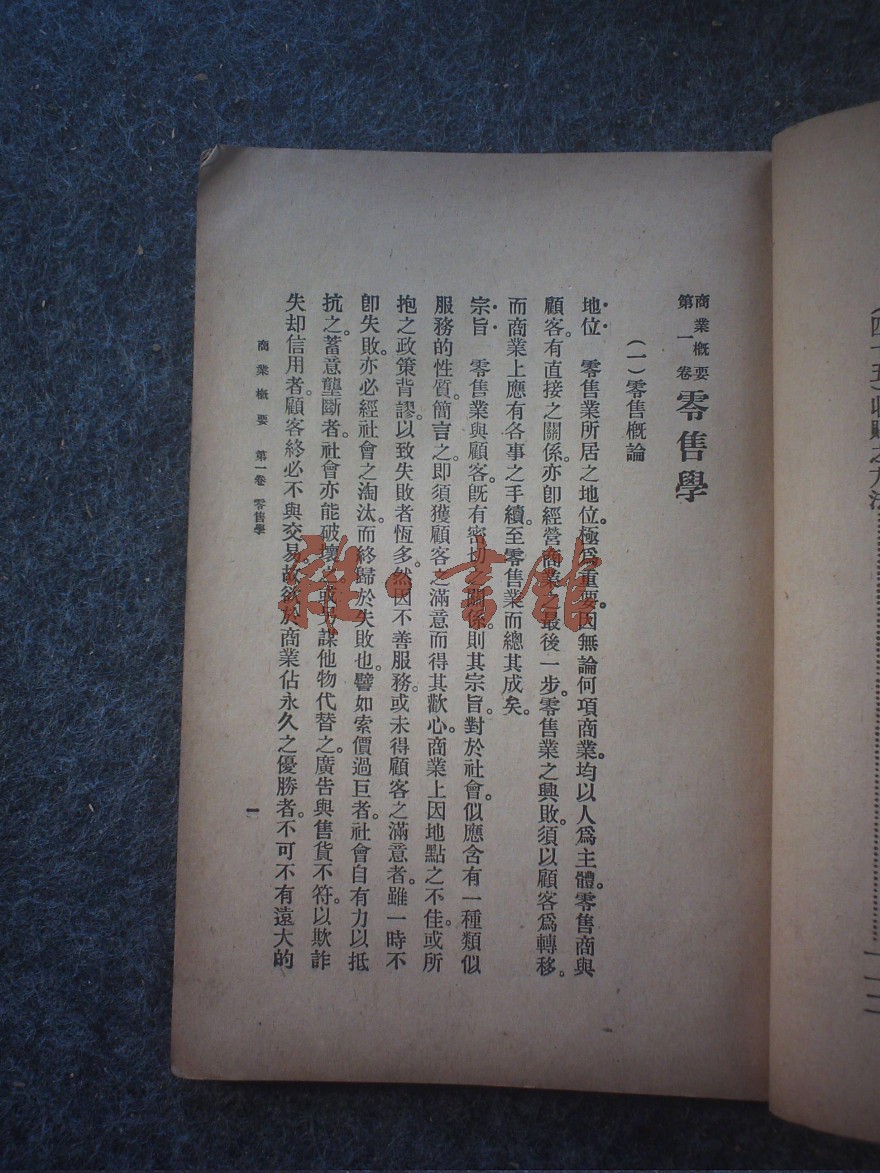 (四十五)收賬之方法……一一二
商業概要
第一卷 零售學
(一)零售概論
地位 零售業所居之地位。極爲重要。因無論何項商業。均以人爲主體。零售商與
顧客。有直接之關係。亦卽經營商業之最後一步。零售業之興敗。須以顧客爲轉移。
而商業上應有各事之手續。至零售業而總其成矣。
宗旨 零售業與顧客。旣有密切之關係。則其宗旨。對於社會。似應含有一種類似
服務的性質。簡言之。即須獲顧客之滿意而得其歡心。商業上因地點之不佳。或所
抱之政策背謬。以致失敗者恆多。然因不善服務。或未得顧客之滿意者。雖一時不
卽失敗。亦必經社會之淘汰。而終歸於失敗也。譬如索價過巨者。社會自有力以抵
抗之。蓄意壟斷者。社會亦能破壞之或另謀他物代替之。廣告與售貨不符。以欺詐
失却信用者。顧客終必不與交易。故欲於商業佔永久之優勝者。不可不有遠大的
商業概要 第一卷 零售學
一
雜·書館